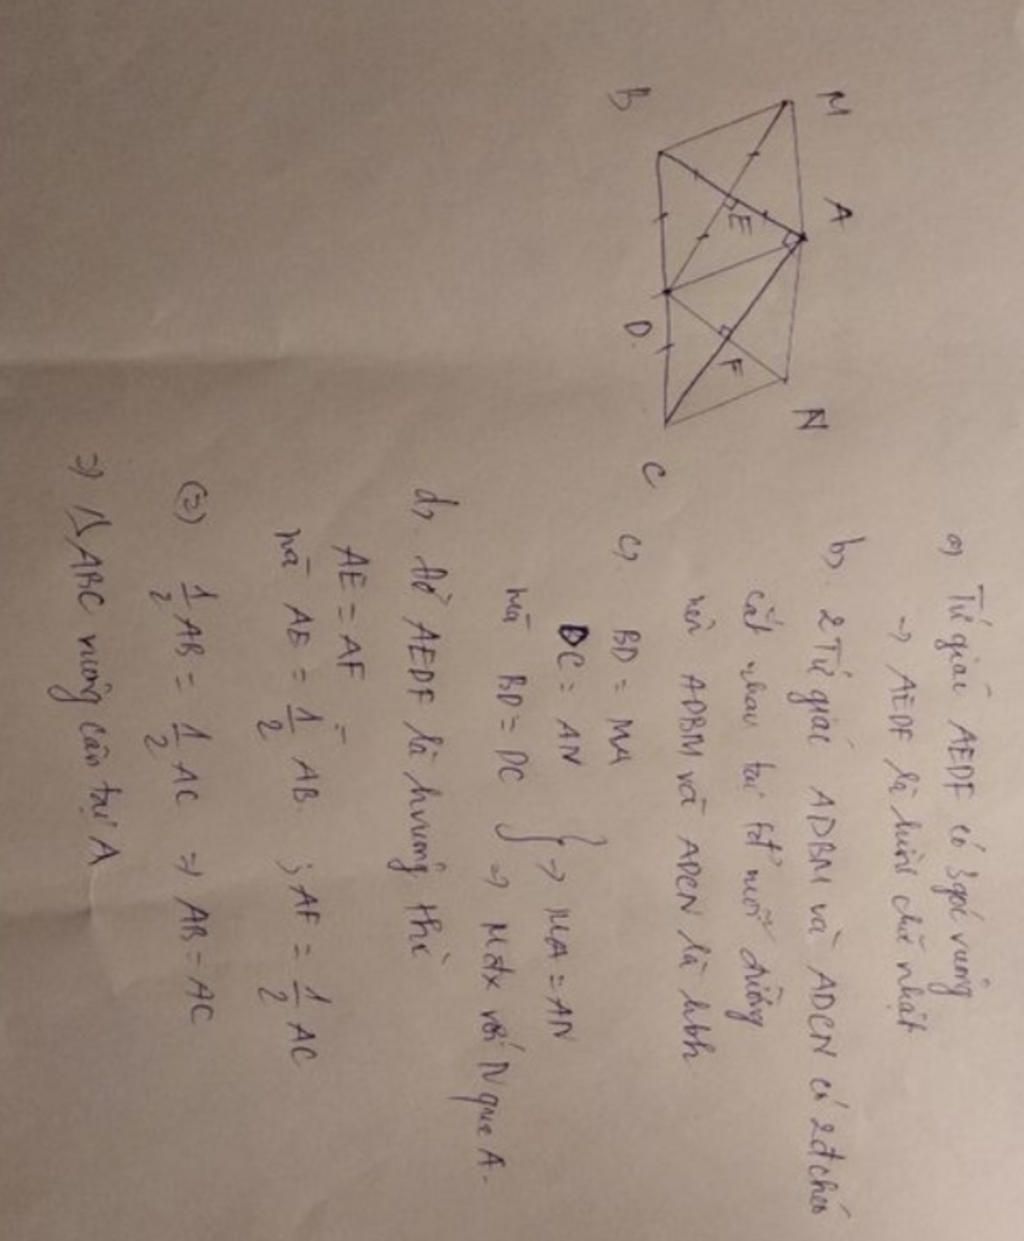 M
A
N
B
E
F
D
C
a) Tứ giác AEDF có 3 góc vuông
→ AEDF là hình chữ nhật
b) 2 Tứ giác ADBM và ADCN có 2 đ chéo
cắt nhau tại tđ mỗi đường
nên ADBM và ADCN là hbh
c) BD = MA
DC = AN
mà BD = DC } → MA = AN
⇒ M đx với N qua A.
d, Để AEDF là hvuông thì
AE = AF
mà AE = 1/2 AB ; AF = 1/2 AC
(=) 1/2 AB = 1/2 AC → AB = AC
=) ΔABC vuông cân tại A